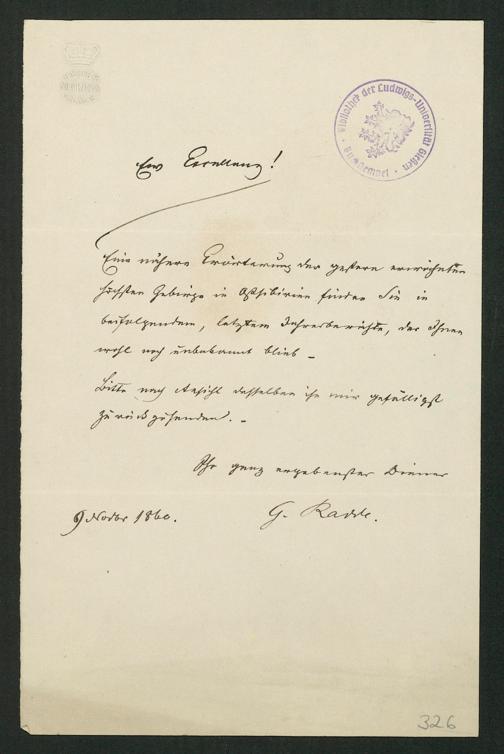 Bibliothek der Ludwigs-Universität Gießen
Ew Excellenz!
Eine nähere Erörterung der gestern erwähnten
höchsten Gebirge in Ostsibirien finden Sie in
beifolgendem, letztem Jahresberichte, der Ihnen
wohl noch unbekannt blieb –
Bitte nach Ansicht desselben ihn mir gefälligst
zurück zu senden. –
Ihr ganz ergebenster Diener
G. Radde.
9 Novbr 1860.
326